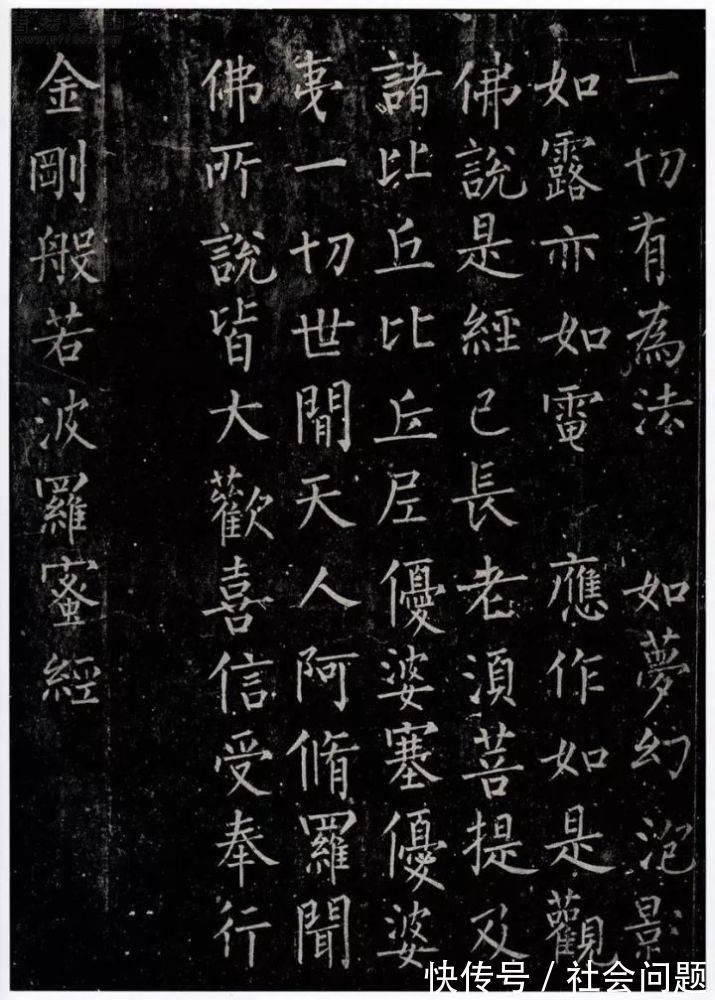 一切有為法 如夢幻泡影
如露亦如電 應作如是觀
佛說是經已長老須菩提及
諸比丘比丘尼優婆塞優婆
夷一切世間天人阿脩羅聞
佛所說皆大歡喜信受奉行
金剛般若波羅蜜經
快传号 / 社会问题